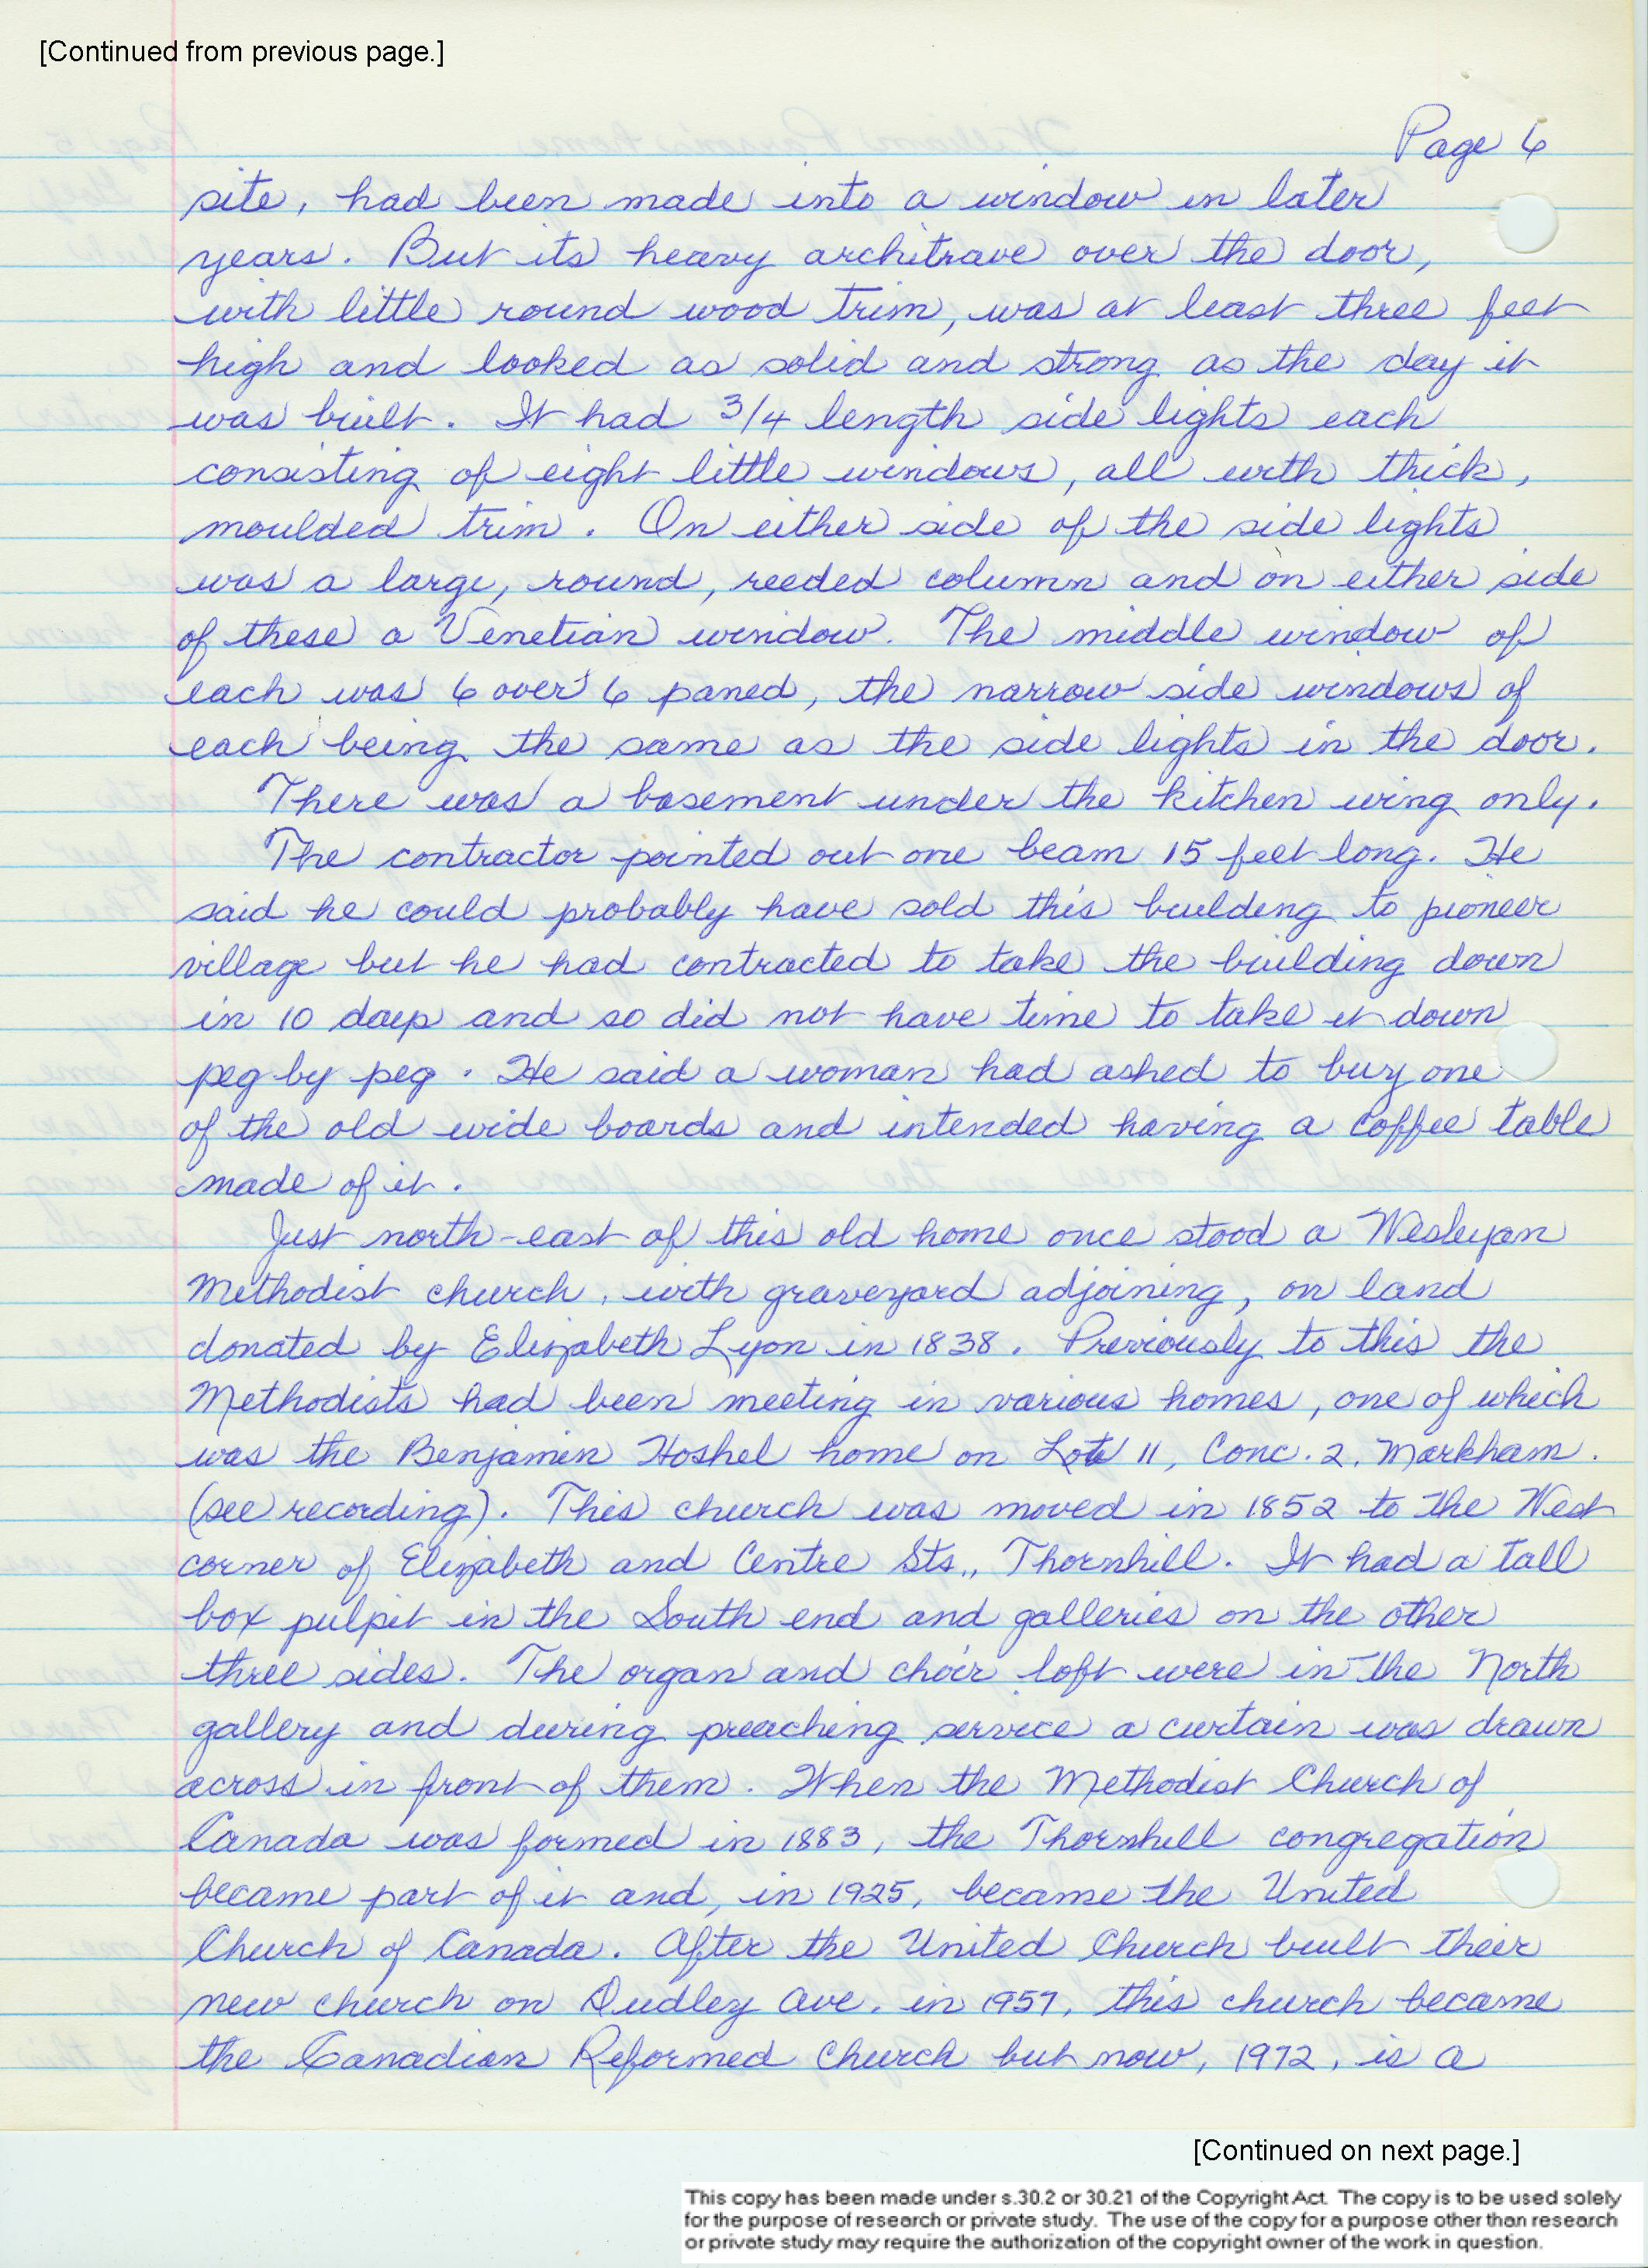 [Continued from previous page.]
Page 6
site, had been made into a window in later
years. But its heavy architrave over the door,
with little round wood trim, was at least three feet
high and looked as solid and strong as the day it
was built. It had 3/4 length side lights each
consisting of eight little windows, all with thick,
moulded trim. On either side of the side lights
was a large, round, reeded column and on either side
of these a Venetian window. The middle window of
each was 6 over 6 paned, the narrow side windows of
each being the same as the side lights in the door.
There was a basement under the kitchen wing only.
The contractor pointed out one beam 15 feet long. He
said he could probably have sold this building to pioneer
village but he had contracted to take the building down
in 10 days and so did not have time to take it down
peg by peg. He said a woman had asked to buy one
of the old wide boards and intended having a coffee table
made of it.
Just north-east of this old home once stood a Wesleyan
Methodist church, with graveyard adjoining, on land
donated by Elizabeth Lyon in 1838. Previously to this the
Methodists had been meeting in various homes, one of which
was the Benjamin Hoshel home on Lot 11, Conc. 2, Markham.
(see recording). This church was moved in 1852 to the West
corner of Elizabeth and Centre Sts., Thornhill. It had a tall
box pulpit in the South end and galleries on the other
three sides. The organ and choir loft were in the North
gallery and during preaching service a curtain was drawn
across in front of them. When the Methodist Church of
Canada was formed in 1883, the Thornhill congregation
became part of it and, in 1925, became the United
Church of Canada. After the United Church built their
new church on Dudley Ave. in 1957, this church became
the Canadian Reformed Church but now, 1972, is a
[Continued on next page.]
This copy has been made under s.30.2 or 30.21 of the Copyright Act. The copy is to be used solely
for the purpose of research or private study. The use of the copy for a purpose other than research
or private study may require the authorization of the copyright owner of the work in question.